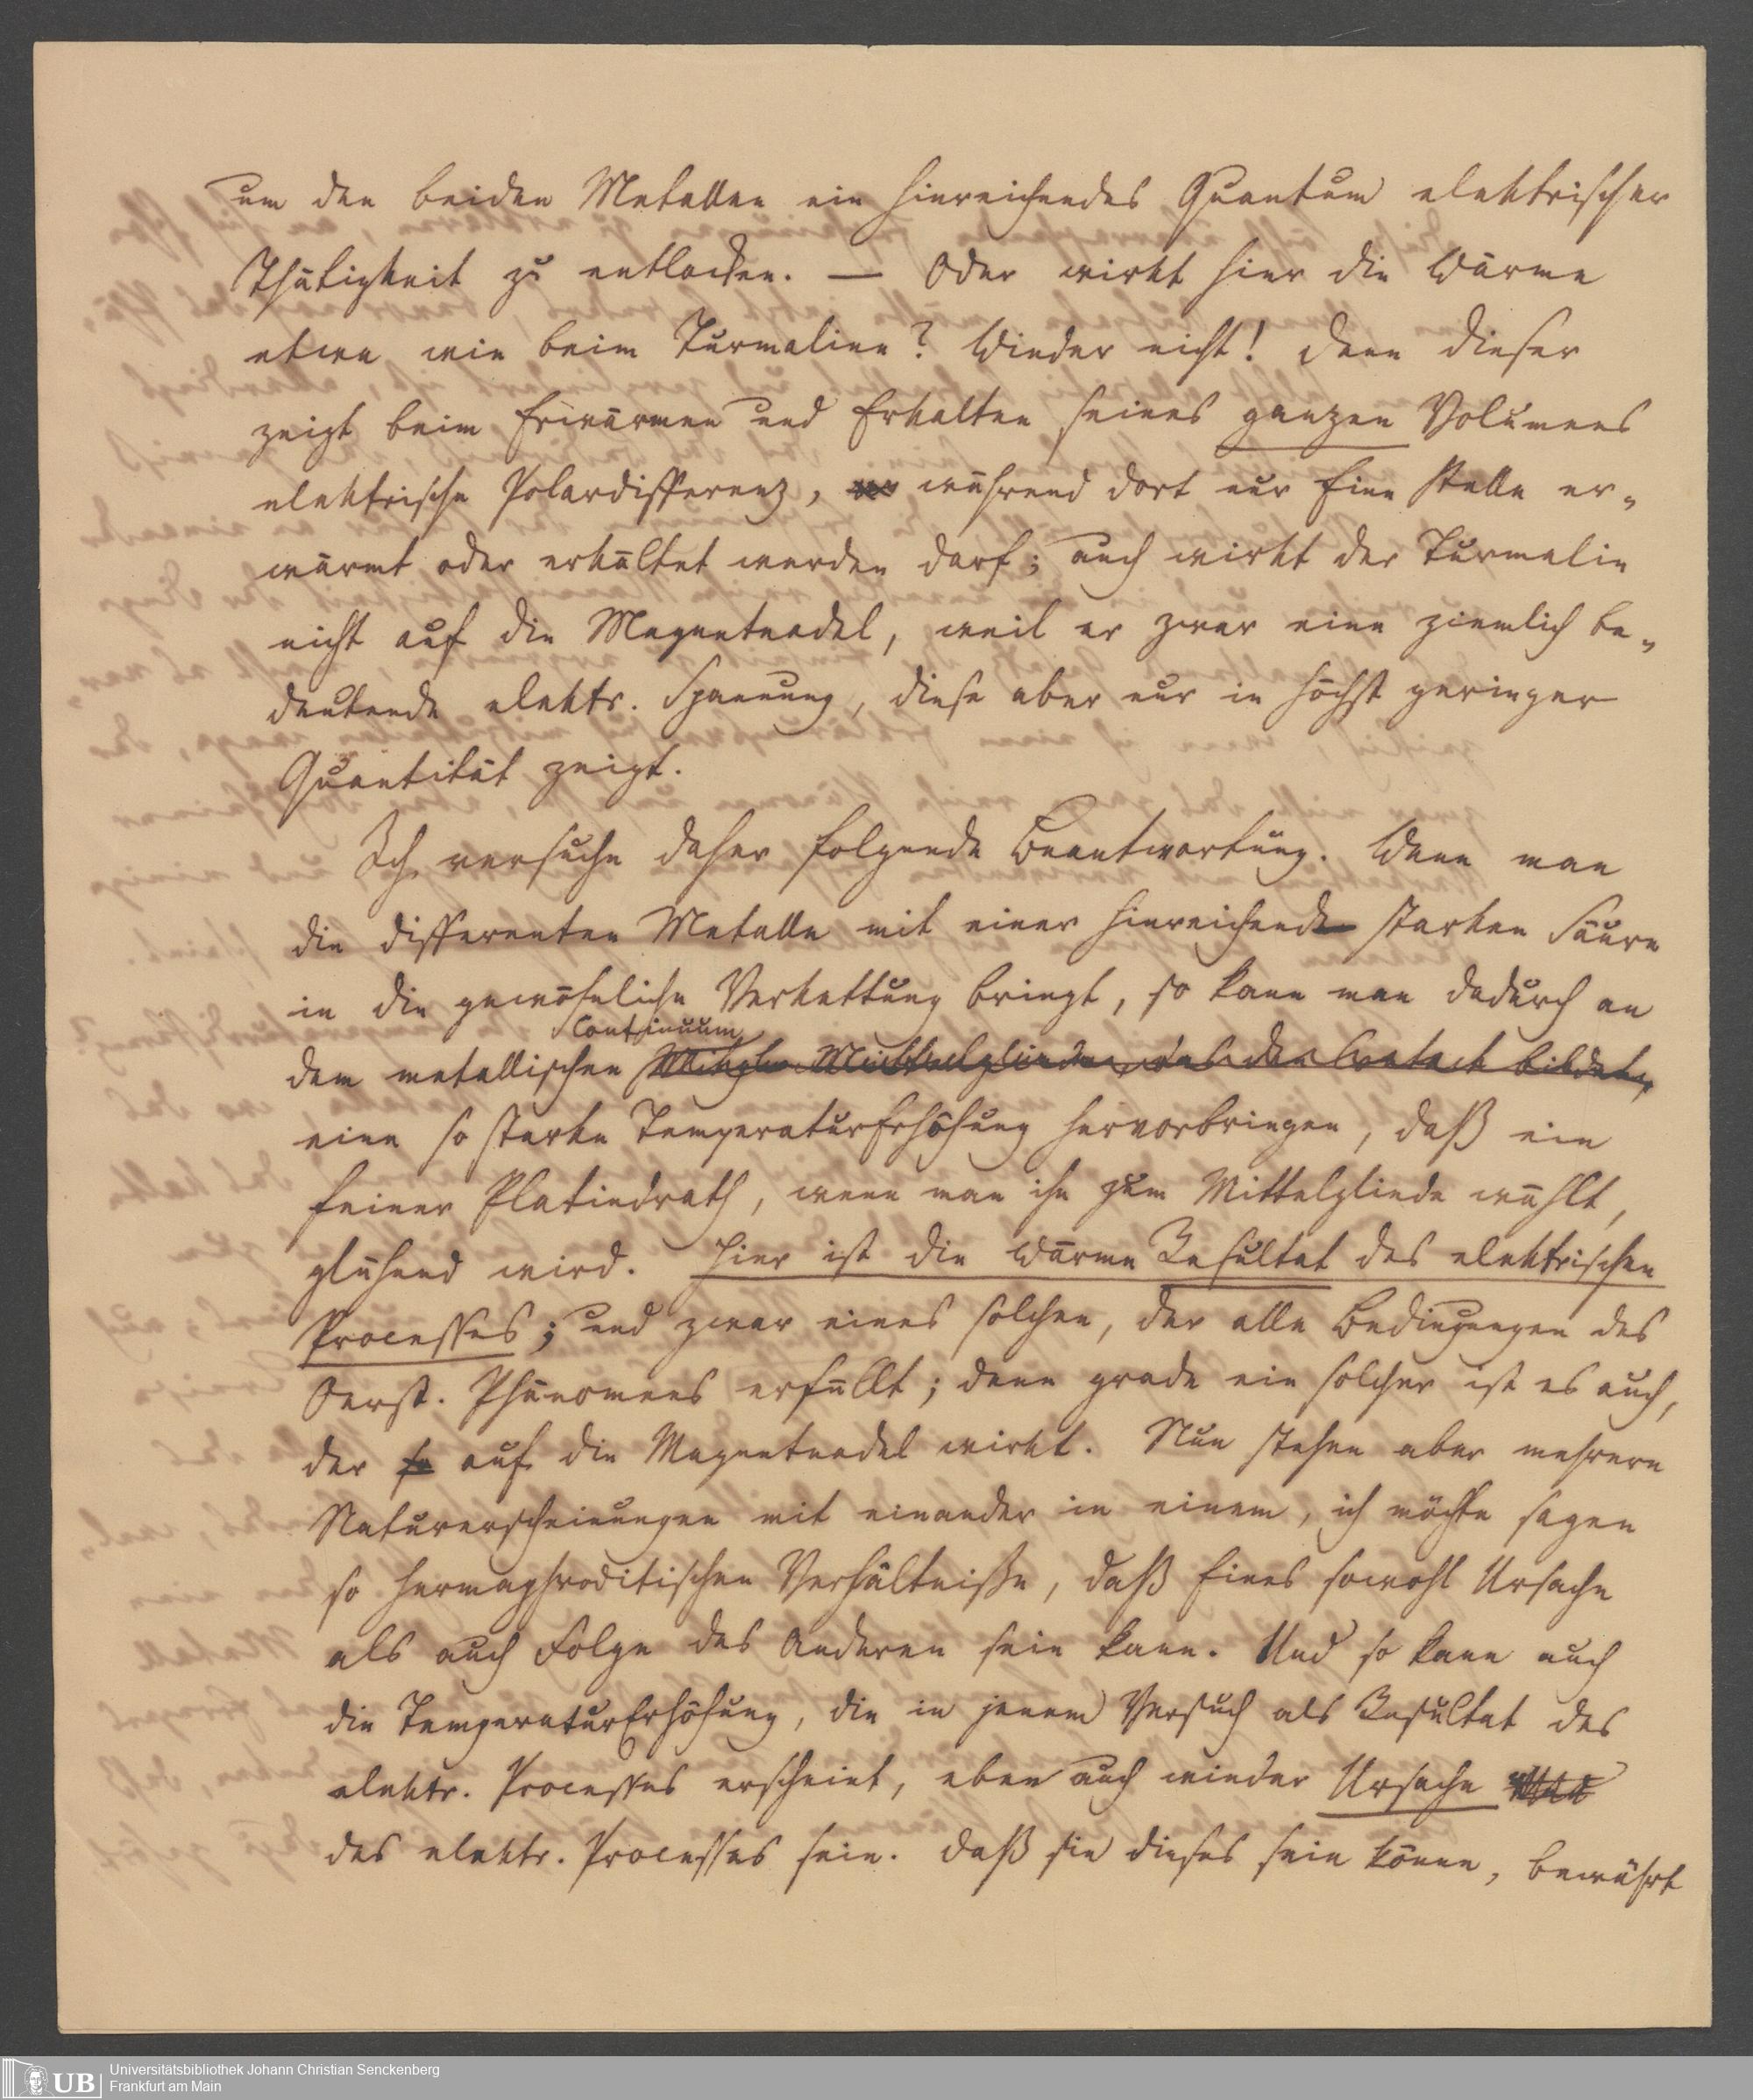 um den beiden Metallen ein hinreichendes Quantum elektrischer
Thätigkeit zu entlocken. — Oder wirkt hier die Wärme
etwa wie beim Turmaline? Wieder nicht! denn dieser
zeigt beim Erwärmen und Erkalten seines ganzen Volumens
elektrische Polardifferenz, während dort nur Eine Stelle er-
wärmt oder erkältet werden darf; auch wirkt der Turmalin
nicht auf die Magnetnadel, weil er zwar eine ziemlich be-
deutende elektr. Spannung, diese aber nur in höchst geringer
Quantität zeigt.
Ich versuche daher folgende Beantwortung. Wenn man
die differenten Metalle mit einer hinreichend starken Säure
in die gewöhnliche Verkettung bringt, so kann man dadurch an
Continuum
dem metallischen Mittelgliede, das den Contact bildet,
eine so starke TemperaturErhöhung hervorbringen, daß ein
feiner Platindrath, wenn man ihn zum Mittelgliede wählt,
glühend wird. Hier ist die Wärme Resultat des elektrischen
Processes; und zwar eines solchen, der alle Bedingungen des
Oerst. Phänomens erfüllt; denn grade ein solcher ist es auch,
der so auf die Magnetnadel wirkt. Nun stehen aber mehrere
Naturerscheinungen mit einander in einem, ich möchte sagen
so hermaphroditischen Verhältniße, daß Eines sowohl Ursache
als auch Folge des Anderen sein kann. Und so kann auch
die TemperaturErhöhung, die in jenem Versuch als Resultat des
elektr. Processes erscheint, eben auch wieder Ursache
des elektr. Processes sein. Daß sie dieses sein könne, bewährt
UB Universitätsbibliothek Johann Christian Senckenberg
Frankfurt am Main